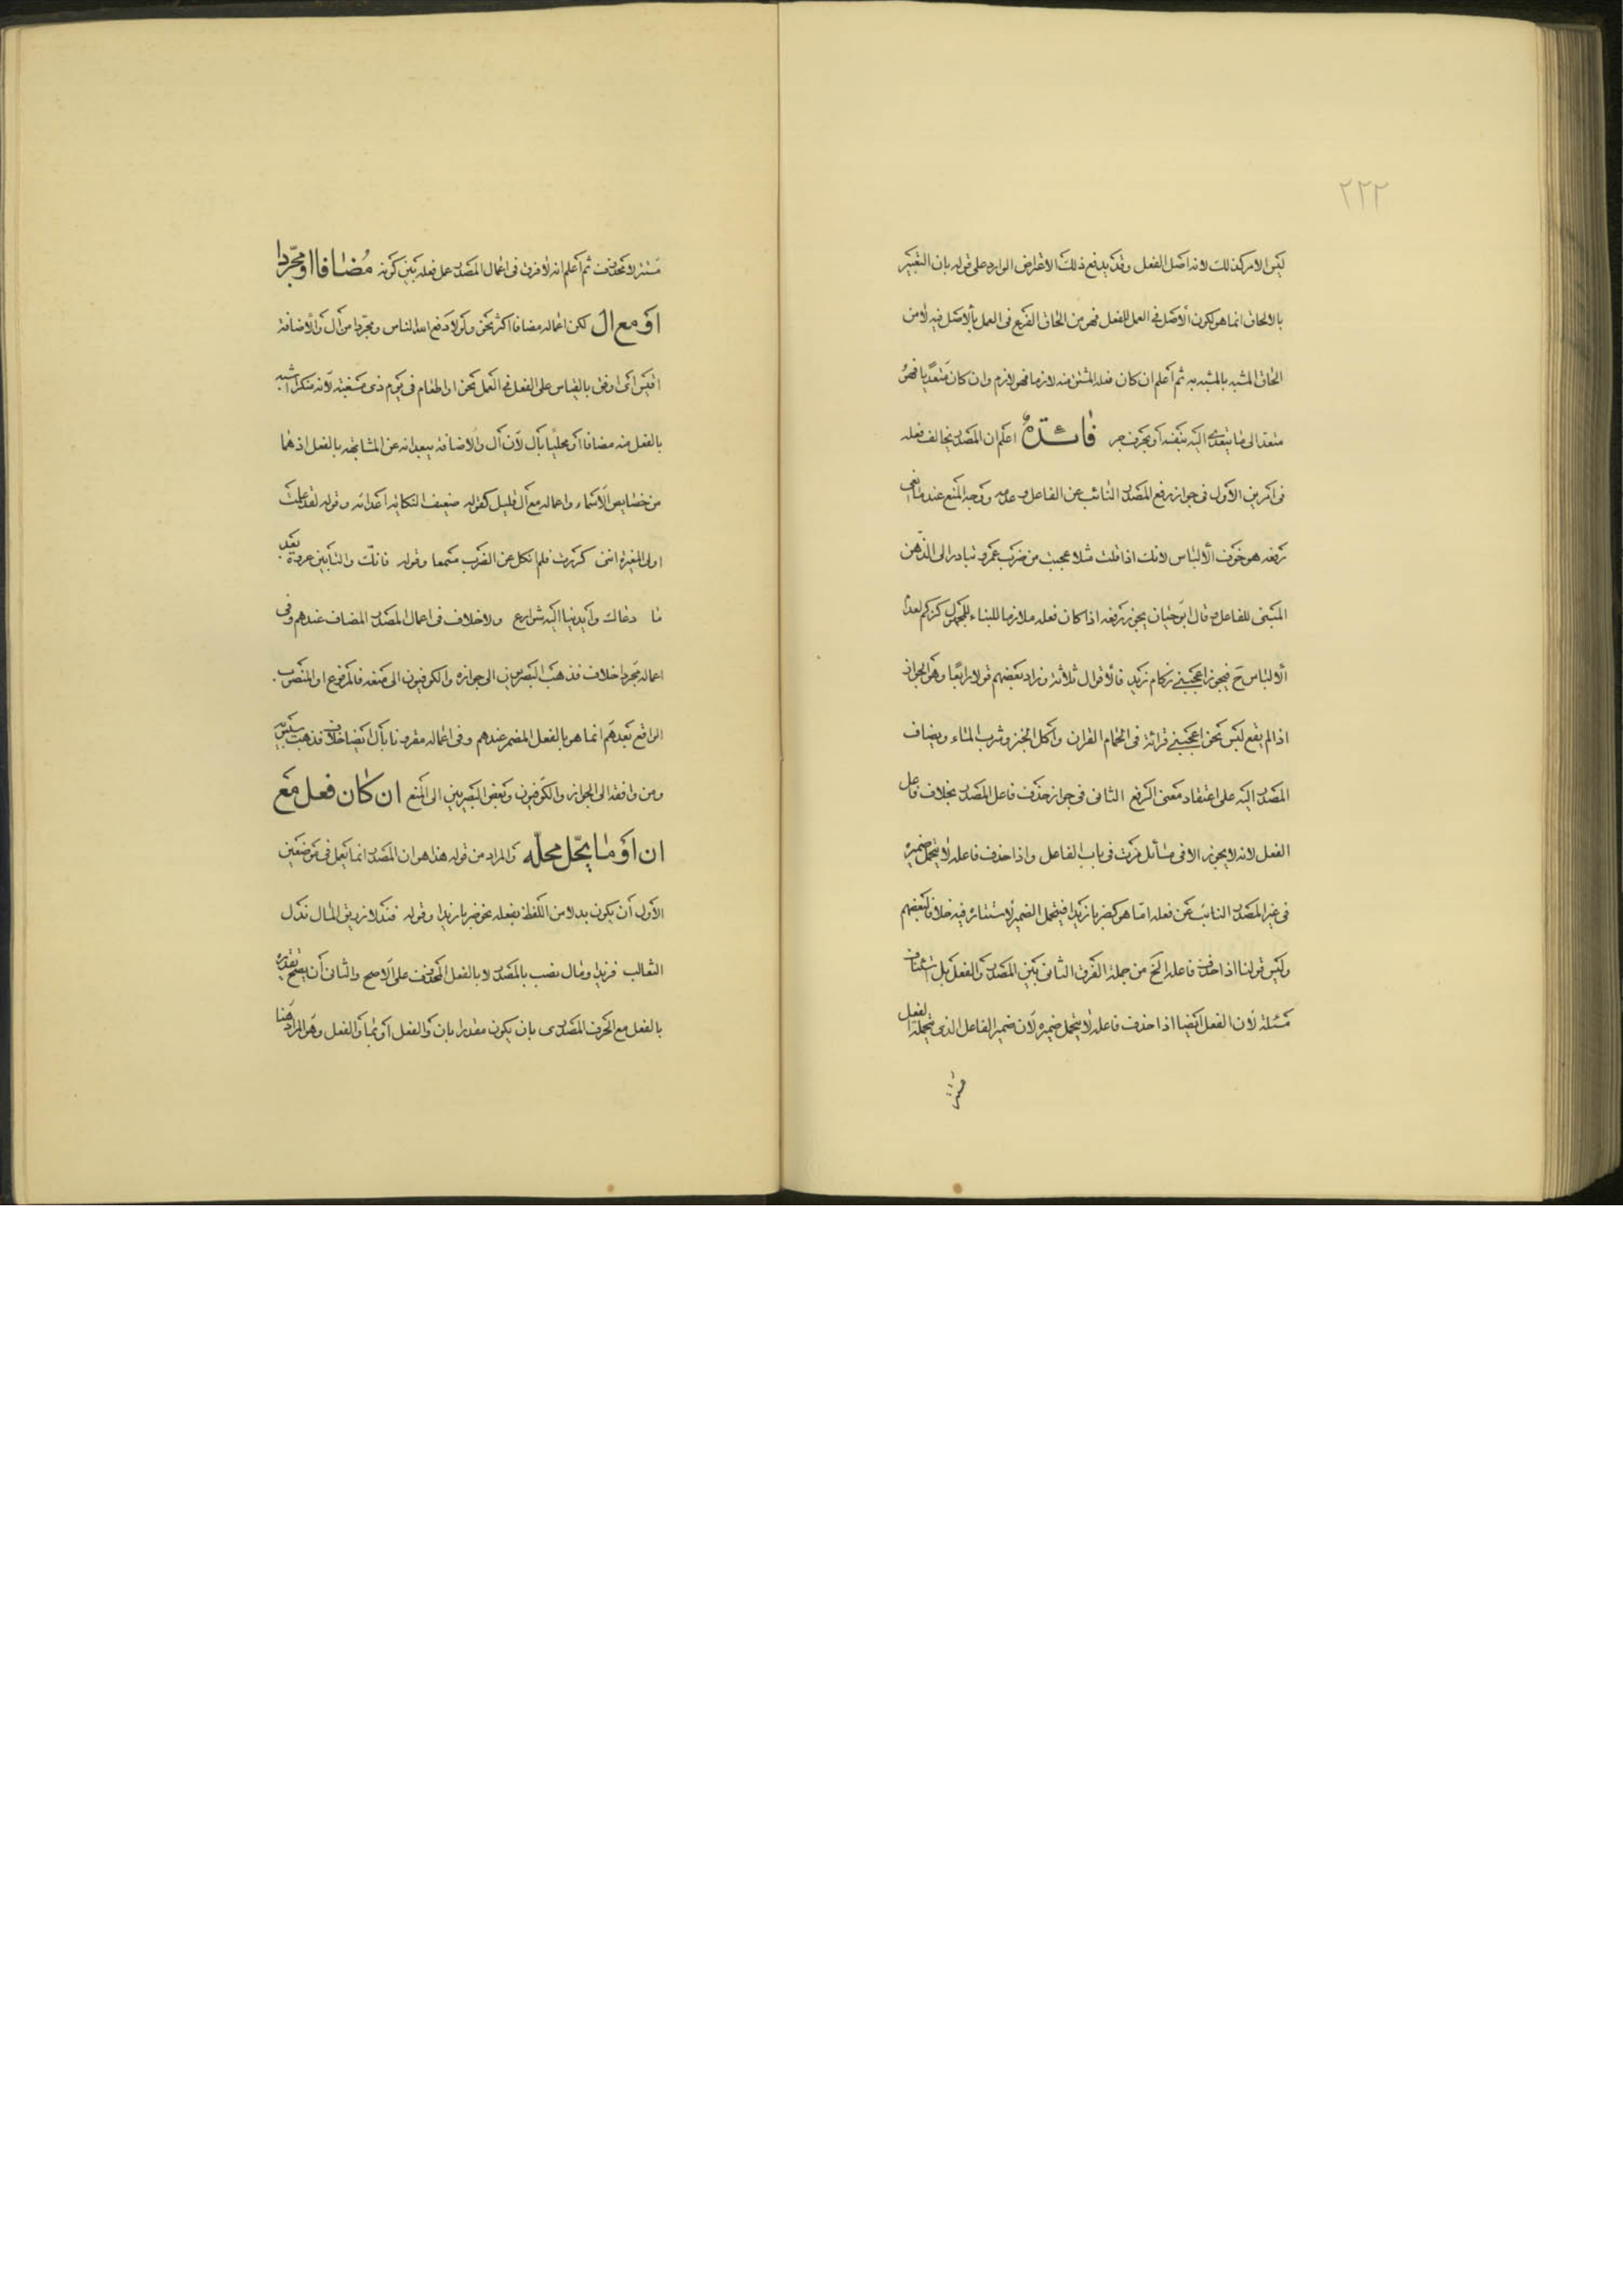 ٢٢٢
ليس الامر كذلك لانه اصل الفعل وقد يدفع ذلك الاعتراض الوارد على قوله بان التعبير
بالالحاق انما هو لكون الأصل في العمل للفعل فهو من الحاق الفرع في العمل بالأصل فيه لا من
الحاق المشبه بالمشبه به ثم أعلم ان كان فعله المشتق منه لازما فهو لازم وان كان متعديا فهو
متعد الى ما يتعدى اليه بنفسه أو بحرف جر فائدة اعلم ان المصدر يخالف فعله
في امرين الأول في جواز رفع المصدر النائب عن الفاعل وعدمه ووجه المنع عند مانعي
رفعه هو خوف ألالباس لانك اذا قلت مثلا عجبت من ضرب عمرو تبادر الى الذهن
المبني للفاعل وقال ابو حيان يجوز رفعه اذا كان فعله ملازما للبناء للمجهول كزكم لعدم
ألالباس ح فيجوز اعجبني زكام زيد فالأقوال ثلاثة وزاد بعضهم قولا رابعا وهو الجواز
اذا لم يقع لبس نحو اعجبني قرائة في الحمام القران وأكل الخبز وشرب الماء ويضاف
المصدر اليه على اعتقاد معنى الرفع الثاني في جواز حذف فاعل المصدر بخلاف فاعل
الفعل لانه لا يجوز الا في مسائل مرت في باب الفاعل واذا حذف فاعله لا يتحمل ضميره
في غير المصدر النائب عن فعله اما هو كضربا زيدا فيتحمل الضمير لاستتاره فيه خلافا لبعضهم
وليس قولنا اذا حذف فاعله الخ من جملة الفرق الثاني بين المصدر والفعل بل
مسئلة لان الفعل ايضا اذا حذف فاعله لا يتحمل ضميره لان ضمير الفاعل الذي يتحمله الفعل
مستتر
مستتر لا محذوف ثم أعلم انه لا فرق في اعمال المصدر عمل فعله بين كونه مُضافا او مجردا
أو مع ال لكن اعماله مضافا اكثر نحو ولولا دفع الله الناس ومجردا من أل والاضافة
اقيس اى اوفق بالقياس على الفعل في العمل نحو او اطعام في يوم ذي مسغبة لأنه منكرا اشبه
بالفعل منه مضافا أو محليا بأل لأن أل والاضافة يبعدانه عن المشابهة بالفعل اذ هما
من خصايص الأسماء واعماله مع أل قليل كقوله ضعيف النكاية اعدائه وقوله لقد علمت
اولى المغيرة انني كررت فلم انكل عن الضرب مسمعا وقوله فانك والتأبين عروة بعد
ما دعاك وايدينا اليه شوارع ولا خلاف في اعمال المصدر المضاف عندهم وفى
اعماله مجردا خلاف فذهب البصريون الى جوازه والكوفيون الى منعه فالمرفوع او المنصوب
الواقع بعدهم انما هو بالفعل المضمر عندهم وفى اعماله مقرونا بأل ايضا خلاف فذهب سيبويه
ومن وافقه الى الجواز والكوفيون وبعض البصريين الى المنع ان كان فعل مع
ان أو ما يحلّ محلّه والمراد من قوله هذا هو ان المصدر انما يعمل في موضعين
الأول أن يكون بدلا من اللفظ بفعله نحو ضربا زيدا وقوله فندلا زريق المال ندل
الثعالب فزيدا ومال نصب بالمصدر لا بالفعل المحذوف على الاصح والثاني أن يصح تقديره
بالفعل مع الحرف المصدرى بان يكون مقدرا بان والفعل أو بما والفعل وهو المراد هنا